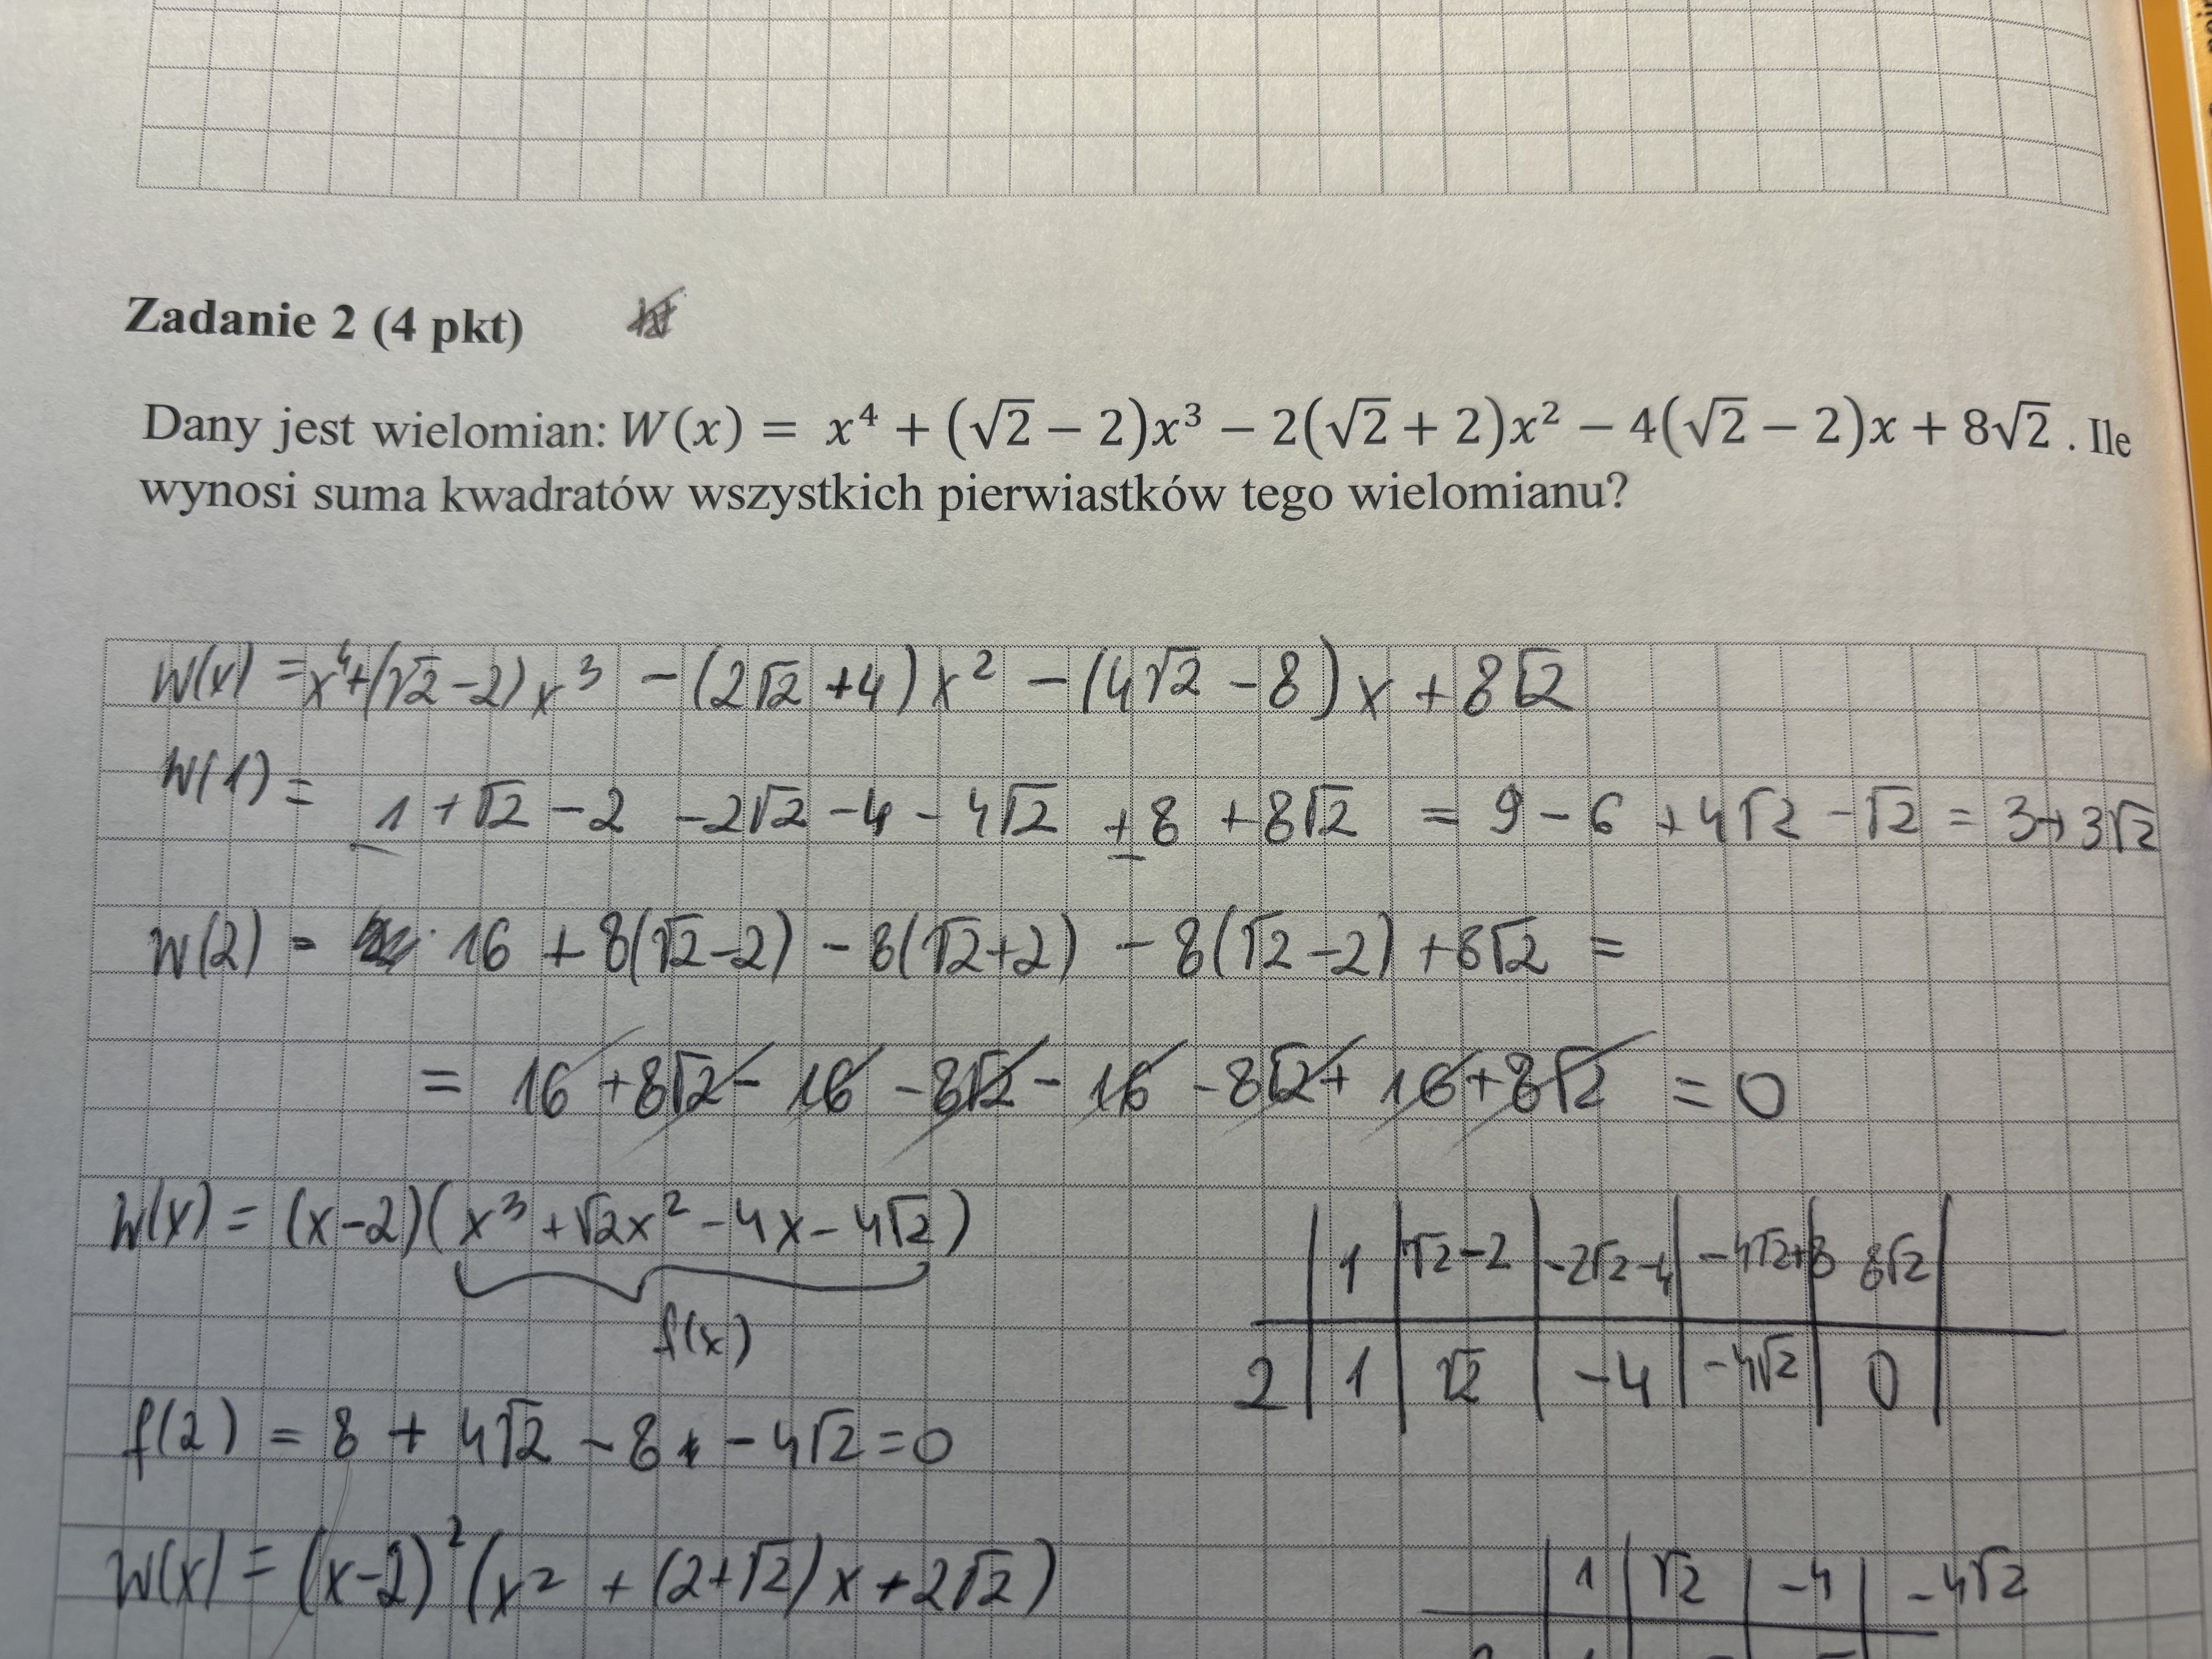 Zadanie 2 (4 pkt)
Dany jest wielomian: W(x) = x⁴ + (√2 − 2)x³ − 2(√2 + 2)x² − 4(√2 − 2)x + 8√2 . Ile
wynosi suma kwadratów wszystkich pierwiastków tego wielomianu?
W(x) = x⁴+(√2 −2)x³ −(2√2 +4)x² −(4√2 −8)x +8√2
W(1) = 1 +√2 −2 −2√2 −4 − 4√2 +8 +8√2 = 9 − 6 +4√2 −√2 = 3+3√2
W(2) = 16 + 8(√2−2) − 8(√2+2) − 8(√2−2) +8√2 =
= 16 +8√2− 16 −8√2− 16 −8√2+ 16+8√2 = 0
W(x) = (x−2)(x³ +√2x² −4x− 4√2)
f(x)
1 | √2−2 | −2√2−4 | −4√2+8 | 8√2
2 | 1 | √2 | −4 | −4√2 | 0
f(2) = 8 + 4√2 − 8 − 4√2 = 0
W(x) = (x−2)²(x² + (2+√2)x + 2√2)
1 | √2 | −4 | −4√2